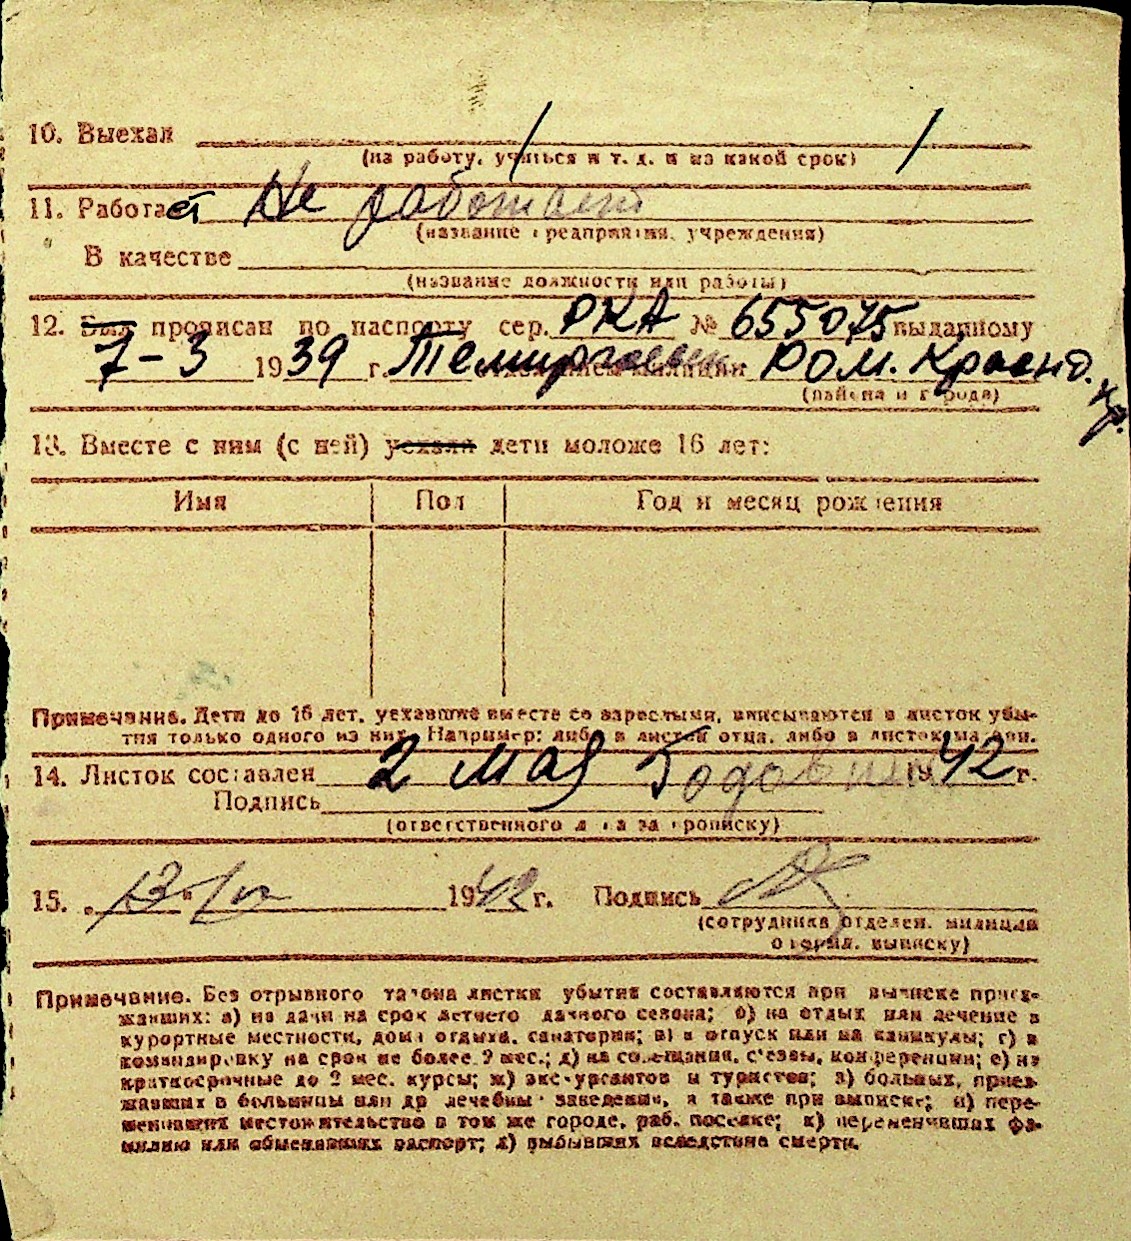 10. Выехал
(на работу, учиться и т. д. и на какой срок)
11. Работает Не работает
(название предприятия, учреждения)
В качестве
(название должности или работы)
12. Был прописан по паспорту сер. РКА № 655075 выданному
7-3 1939 г. Темиргоевск отделением милиции РОМ. Краснод. кр.
(района и города)
13. Вместе с ним (с ней) уехали дети моложе 16 лет:
Имя Пол Год и месяц рождения
Примечание. Дети до 16 лет, уехавшие вместе со взрослыми, вписываются в листок убы-
тия только одного из них. Например: либо в листок отца, либо в листок матери.
14. Листок составлен 2 мая 1942 г.
Подпись
(ответственного лица за прописку)
15. 1942 г. Подпись
(сотрудника отделен. милиции
оформл. выписку)
Примечание. Без отрывного талона листки убытия составляются при выписке приез-
жавших: а) на дачи на срок летнего дачного сезона; б) на отдых или лечение в
курортные местности, дома отдыха, санатории; в) в отпуск или на каникулы; г) в
командировку на срок не более 2 мес.; д) на совещания, с'езды, конференции; е) на
краткосрочные до 2 мес. курсы; ж) экскурсантов и туристов; з) больных, приез-
жавших в больницы или др лечебны заведения, а также при выписке; и) пере-
менивших местожительство в том же городе, раб. поселке; к) переменивших фа-
милию или обменявших паспорт; л) выбывших вследствие смерти.